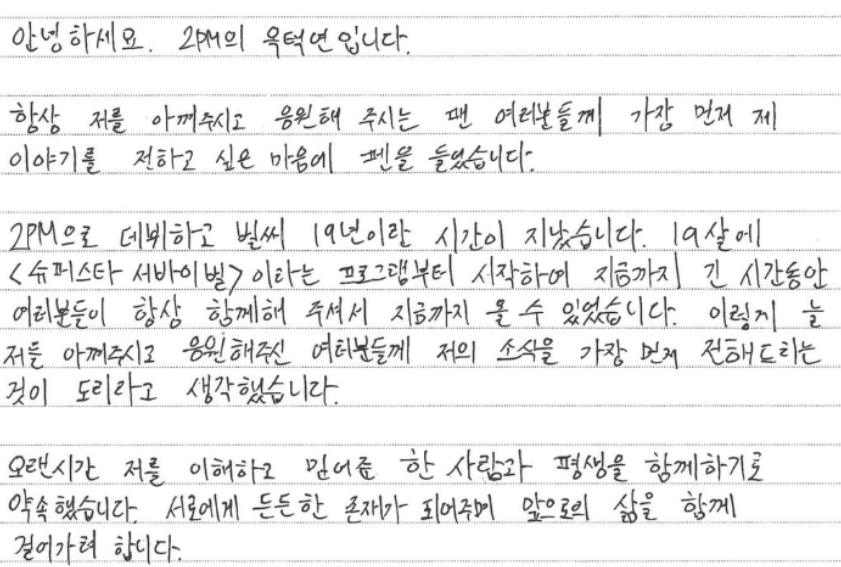 안녕하세요. 2PM의 옥택연입니다.
항상 저를 아껴주시고 응원해 주시는 팬 여러분들께 가장 먼저 제
이야기를 전하고 싶은 마음에 펜을 들었습니다.
2PM으로 데뷔하고 벌써 19년이란 시간이 지났습니다. 19살에
<슈퍼스타 서바이벌> 이라는 프로그램부터 시작하여 지금까지 긴 시간동안
여러분들이 항상 함께해 주셔서 지금까지 올 수 있었습니다. 이렇게 늘
저를 아껴주시고 응원해주신 여러분들께 저의 소식을 가장 먼저 전해드리는
것이 도리라고 생각했습니다.
오랜시간 저를 이해하고 믿어준 한 사람과 평생을 함께하기로
약속했습니다. 서로에게 든든한 존재가 되어주며 앞으로의 삶을 함께
걸어가려 합니다.